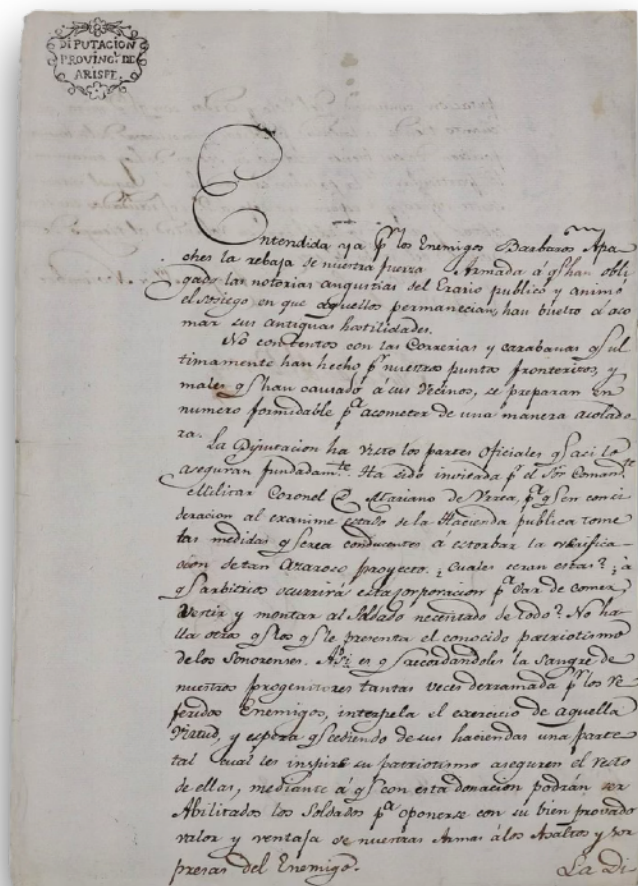 DIPUTACION
PROVINC.^L DE
ARISPE.
Entendida ya p.^r los Enemigos Barbaros Apa
ches la rebaja de nuestra fuerza Armada á q.^e han obli
gado las notorias angustias del Erario publico y
el sosiego en que aquellos permanecian, han buelto á aso
mar sus antiguas hostilidades.
No contentos con las Correrias y q.^e ul
timamente han hecho p.^r nuestros puntos fronterizos, y
males q.^e han causado á sus Vecinos, se preparan en
numero formidable p.^a acometer de una manera asolado
ra.
La Diputacion ha visto los partes oficiales q.^e asi lo
aseguran fundadam.^te. Ha sido invitada p.^r el Sõr Comand.^te
Militar Coronel D. Mariano de Urrea, p.^a q.^e en consi
deracion al exanime estado de la Hacienda publica tome
las medidas q.^e crea conducentes á estorbar la verifica
cion de tan azaroso proyecto. ¿Cuales seran estas? ¿á
q.^e arbitrios ocurrirá esta corporacion p.^a dar de comer
vestir y montar al Soldado necesitado de todo? No ha
lla otros q.^e los q.^e le presenta el conocido patriotismo
de los Sonorenses. Asi es q.^e recordandoles la sangre de
nuestros progenitores tantas veces derramada p.^r los re
feridos Enemigos, interpela el exercicio de aquella
Virtud, y espera q.^e cediendo de sus haciendas una parte
tal cual les inspire su patriotismo aseguren el resto
de ellas, mediante á q.^e con esta donación podrán ser
Abilitados los Soldados p.^a oponerse con su bien provado
valor y ventaja de nuestras Armas á los Asaltos y sor
presas del Enemigo.
La Di